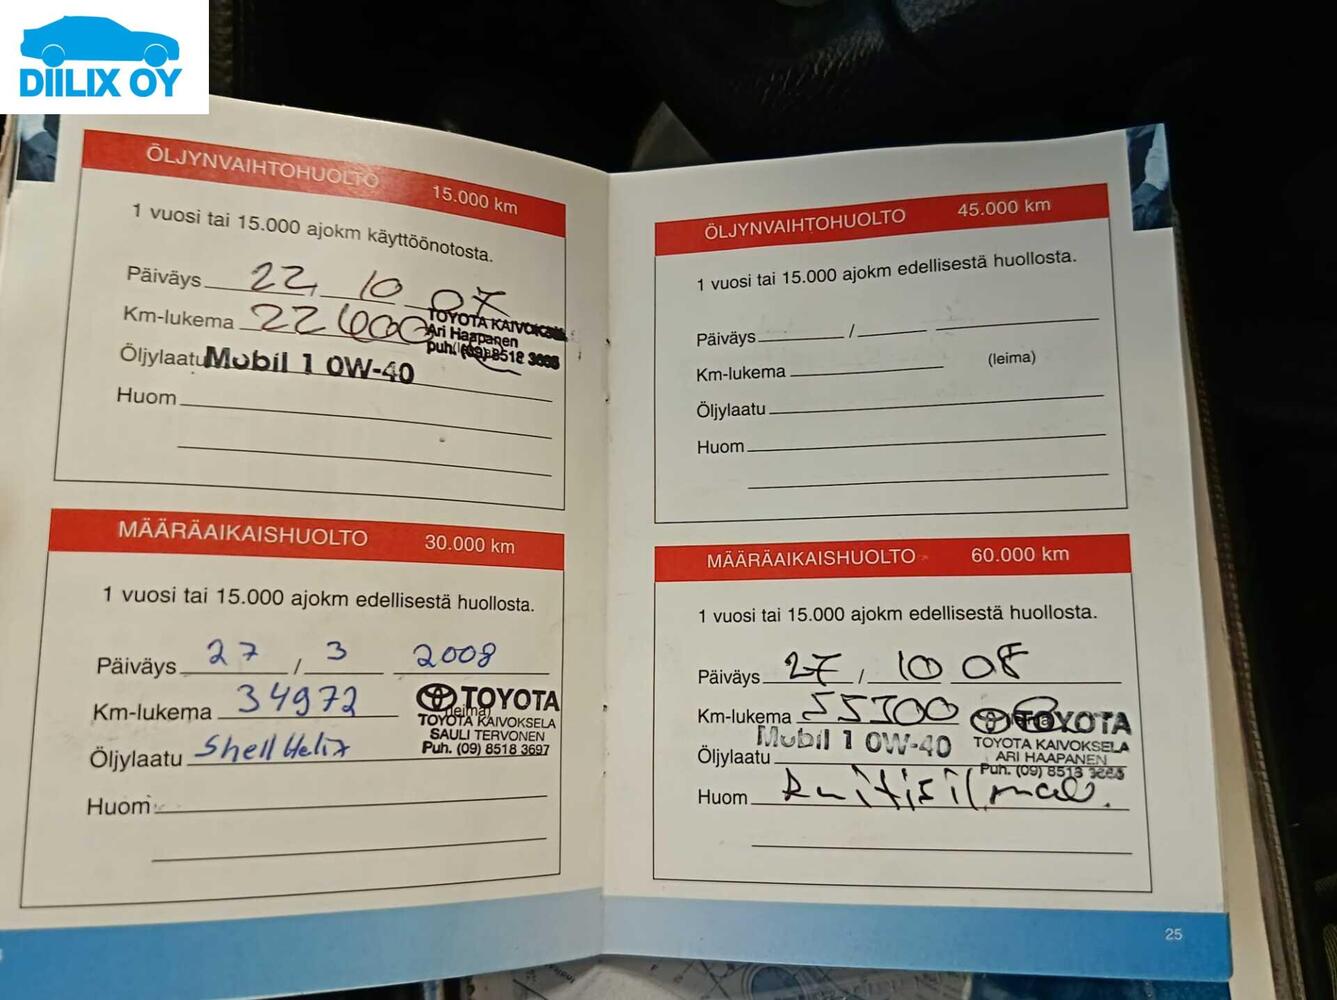 DIILIX OY
ÖLJYNVAIHTOHUOLTO 15.000 km
1 vuosi tai 15.000 ajokm käyttöönotosta.
Päiväys 22. 10 07
Km-lukema 22600
TOYOTA KAIVOKSELA
Ari Haapanen
puh. (09) 8518
Öljylaatu Mobil 1 0W-40
Huom
MÄÄRÄAIKAISHUOLTO 30.000 km
1 vuosi tai 15.000 ajokm edellisestä huollosta.
Päiväys 27 / 3 2008
Km-lukema 34972
(leima)
TOYOTA
TOYOTA KAIVOKSELA
SAULI TERVONEN
Puh. (09) 8518 3697
Öljylaatu Shell Helix
Huom
ÖLJYNVAIHTOHUOLTO 45.000 km
1 vuosi tai 15.000 ajokm edellisestä huollosta.
Päiväys /
Km-lukema (leima)
Öljylaatu
Huom
MÄÄRÄAIKAISHUOLTO 60.000 km
1 vuosi tai 15.000 ajokm edellisestä huollosta.
Päiväys 27 / 10 08
Km-lukema
TOYOTA
TOYOTA KAIVOKSELA
ARI HAAPANEN
Puh. (09) 8518
Öljylaatu Mobil 1 0W-40
Huom
25